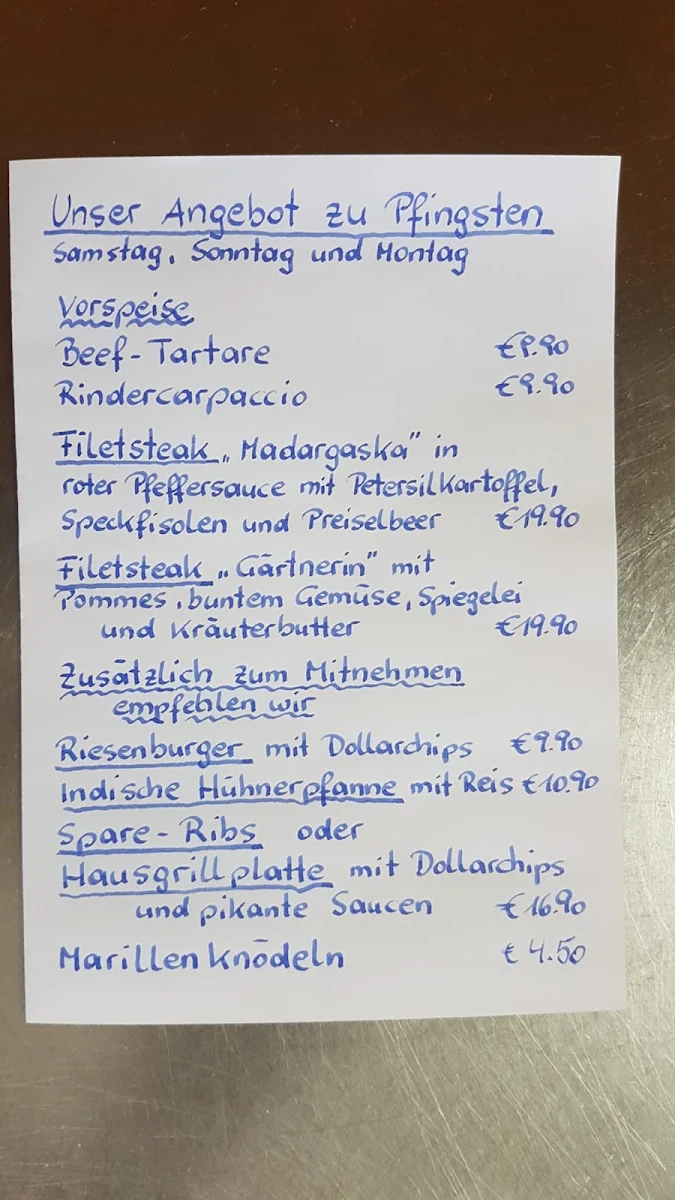 Unser Angebot zu Pfingsten
Samstag, Sonntag und Montag
Vorspeise
Beef-Tartare €8.90
Rindercarpaccio €9.90
Filetsteak „Madargaska" in
roter Pfeffersauce mit Petersilkartoffel,
Speckfisolen und Preiselbeer €19.90
Filetsteak „Gärtnerin" mit
Pommes, buntem Gemüse, Spiegelei
und Kräuterbutter €19.90
Zusätzlich zum Mitnehmen
empfehlen wir
Riesenburger mit Dollarchips €9.90
Indische Hühnerpfanne mit Reis €10.90
Spare-Ribs oder
Hausgrillplatte mit Dollarchips
und pikante Saucen €16.90
Marillenknödeln €4.50